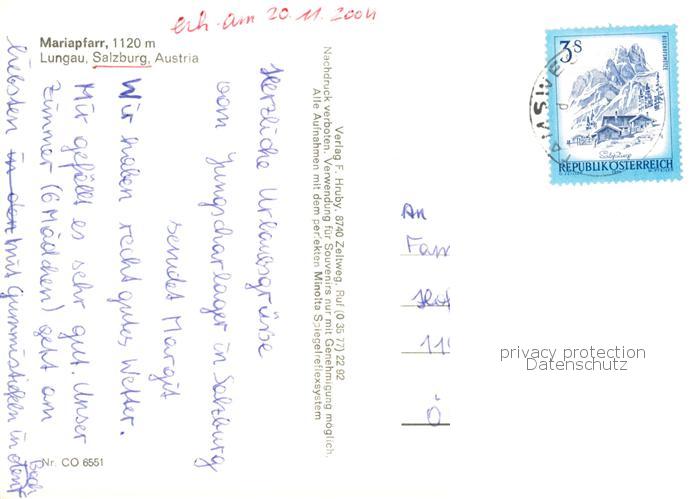 erh. am 20.11.2004
Mariapfarr, 1120 m
Lungau, Salzburg, Austria
Herzliche Urlaubsgrüße
vom Jungscharlager in Salzburg
sendet Margit
Wir haben recht gutes Wetter.
Mir gefällt es sehr gut. Unser
Zimmer (6 Mädchen) geht am
liebsten in den mit Gummistiefeln in den
Bach
Nr. CO 6551
Verlag F. Hruby, 8740 Zeltweg, Ruf (0 35 77) 22 92
Nachdruck verboten. Verwendung für Souvenirs nur mit Genehmigung möglich.
Alle Aufnahmen mit dem perfekten Minolta Spiegelreflexsystem
3 S
TAMSWEG
REPUBLIK ÖSTERREICH
An
Fam
11
Ö
privacy protection
Datenschutz